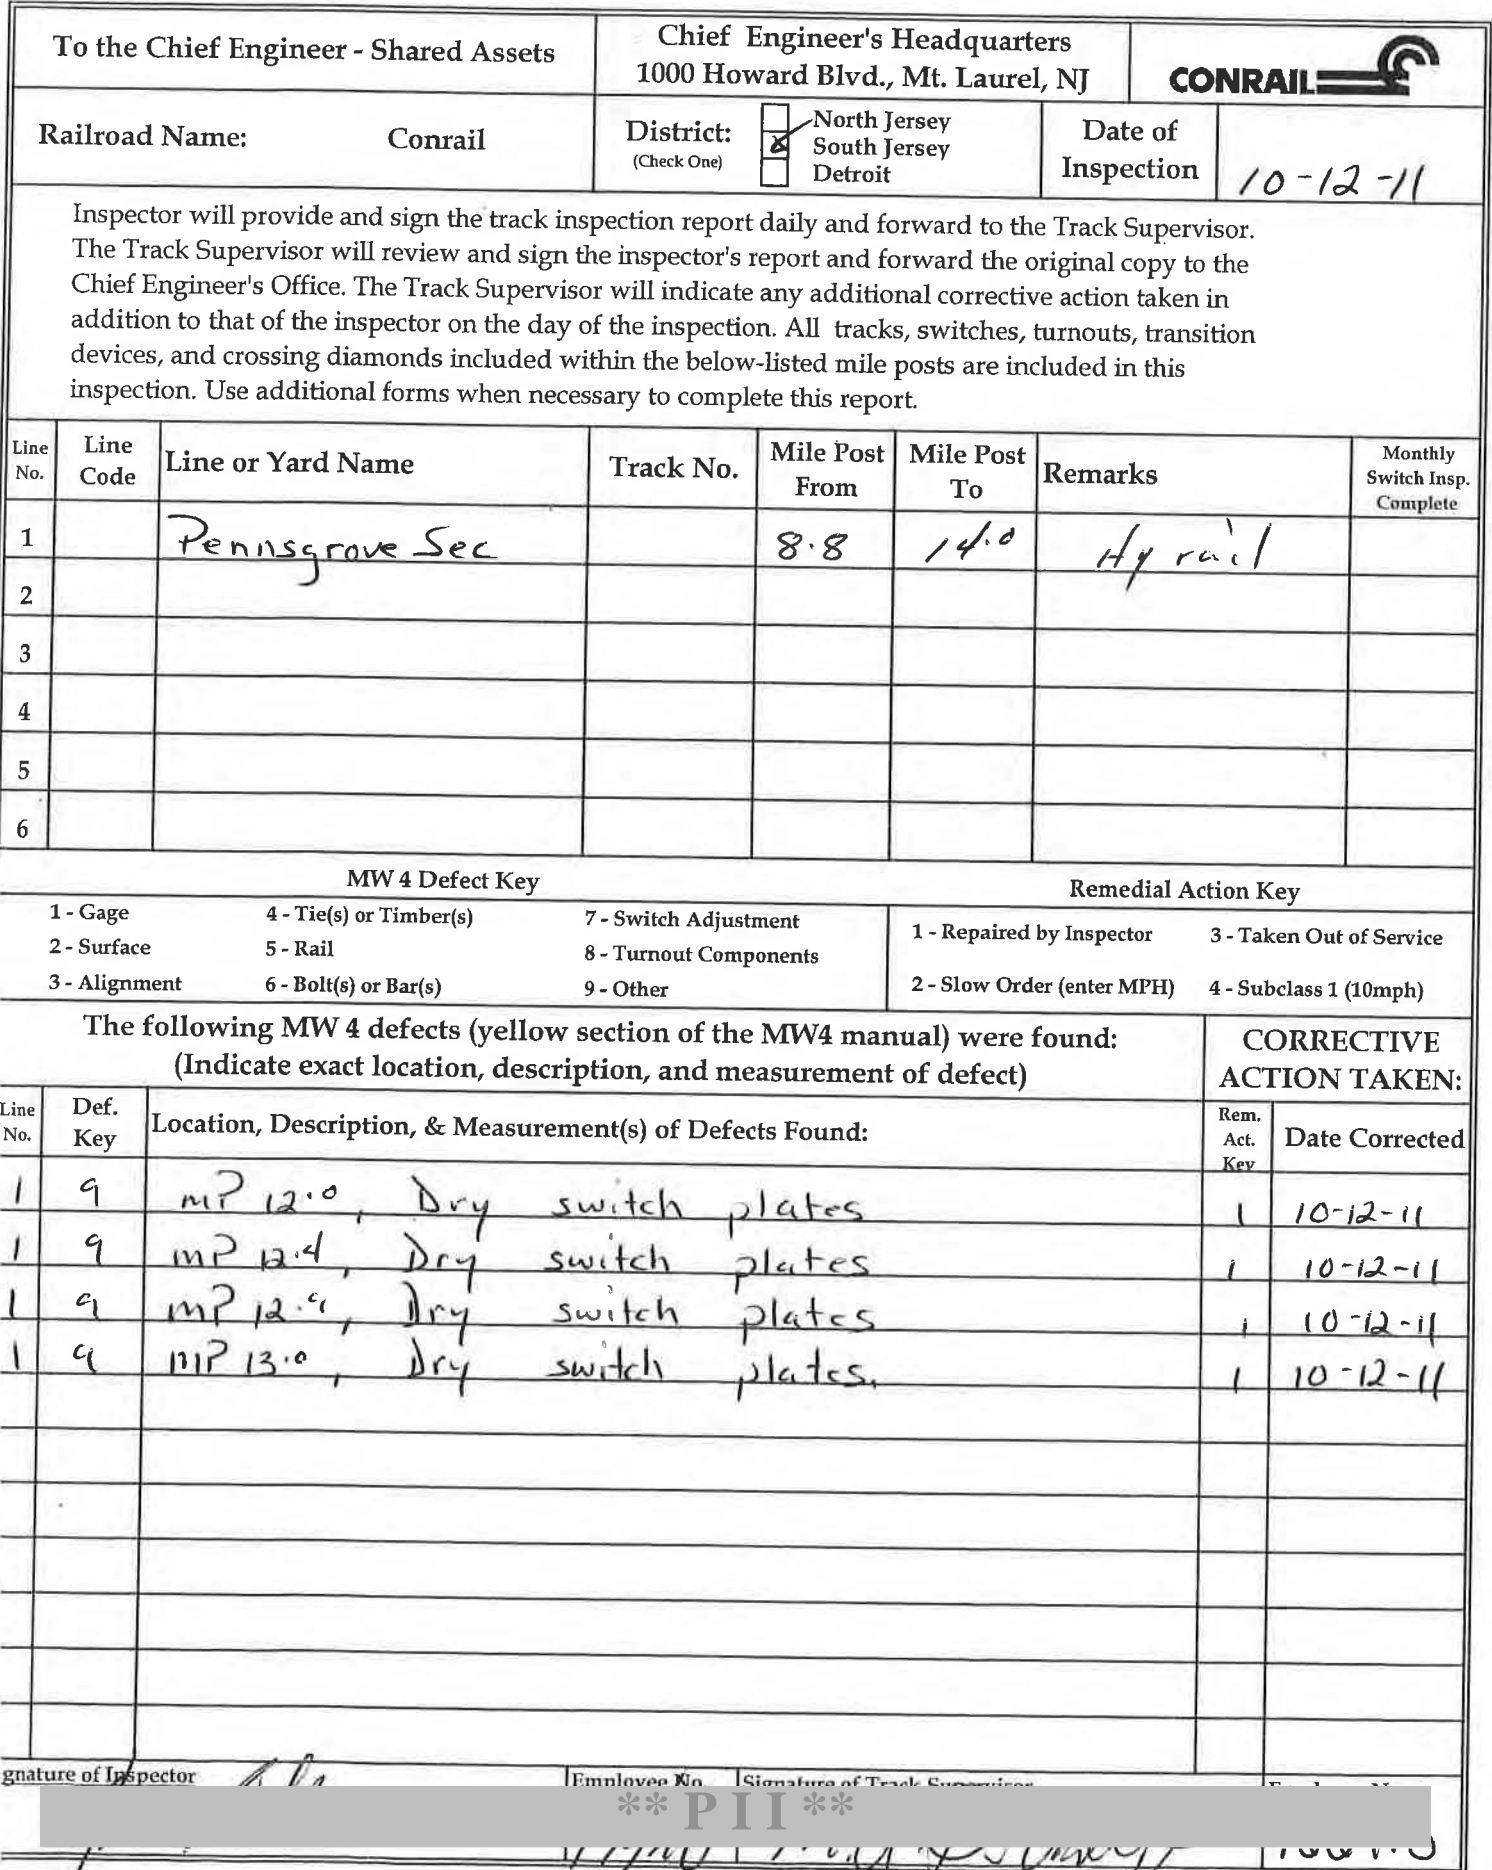 To the Chief Engineer - Shared Assets
Chief Engineer's Headquarters
1000 Howard Blvd., Mt. Laurel, NJ
CONRAIL
Railroad Name: Conrail
District:
(Check One)
North Jersey
South Jersey
Detroit
Date of
Inspection
10-12-11
Inspector will provide and sign the track inspection report daily and forward to the Track Supervisor.
The Track Supervisor will review and sign the inspector's report and forward the original copy to the
Chief Engineer's Office. The Track Supervisor will indicate any additional corrective action taken in
addition to that of the inspector on the day of the inspection. All tracks, switches, turnouts, transition
devices, and crossing diamonds included within the below-listed mile posts are included in this
inspection. Use additional forms when necessary to complete this report.
Line No. Line Code Line or Yard Name Track No. Mile Post From Mile Post To Remarks Monthly Switch Insp. Complete
1 Pennsgrove Sec 8.8 14.0 Hy rail
2
3
4
5
6
MW 4 Defect Key
Remedial Action Key
1 - Gage 4 - Tie(s) or Timber(s) 7 - Switch Adjustment
2 - Surface 5 - Rail 8 - Turnout Components
3 - Alignment 6 - Bolt(s) or Bar(s) 9 - Other
1 - Repaired by Inspector 3 - Taken Out of Service
2 - Slow Order (enter MPH) 4 - Subclass 1 (10mph)
The following MW 4 defects (yellow section of the MW4 manual) were found:
(Indicate exact location, description, and measurement of defect)
CORRECTIVE
ACTION TAKEN:
Line No. Def. Key Location, Description, & Measurement(s) of Defects Found: Rem. Act. Key Date Corrected
1 9 MP 12.0, Dry switch plates 1 10-12-11
1 9 MP 12.4, Dry switch plates 1 10-12-11
1 9 MP 12.9, Dry switch plates 1 10-12-11
1 9 MP 13.0, Dry switch plates. 1 10-12-11
gnature of Inspector Employee No. Signature of Track Supervisor
** P I I **